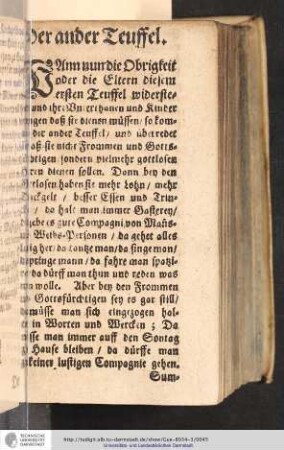 Der ander Teuffel.
Wann nun die Obrigkeit
oder die Eltern diesem
ersten Teuffel widerste-
und ihre Unterthanen und Kinder
daß sie dienen müssen / so kom-
der ander Teuffel / und uberredet
daß sie nicht Frommen und Gotts-
sondern vielmehr gottlosen
dienen sollen. Dann bey den
haben sie mehr Lohn / mehr
besser Essen und Trin-
/ da halt man immer Gasterey /
es gute Compagni, von Mañs-
Weibs-Personen / da gehet alles
her / da tantze man / da singe man /
springe mann / da fahre man spatzi-
/ da dürff man thun und reden was
wolle. Aber bey den Frommen
Gottsfürchtigen sey es gar still /
müsse man sich eingezogen hal-
in Worten und Wercken ; Da
man immer auff den Sontag
Hause bleiben / da dürffe man
keiner lustigen Compagnie gehen.
Sum-
http://tudigit.ulb.tu-darmstadt.de/show/Gue-8554-3/0045
Universitäts- und Landesbibliothek Darmstadt